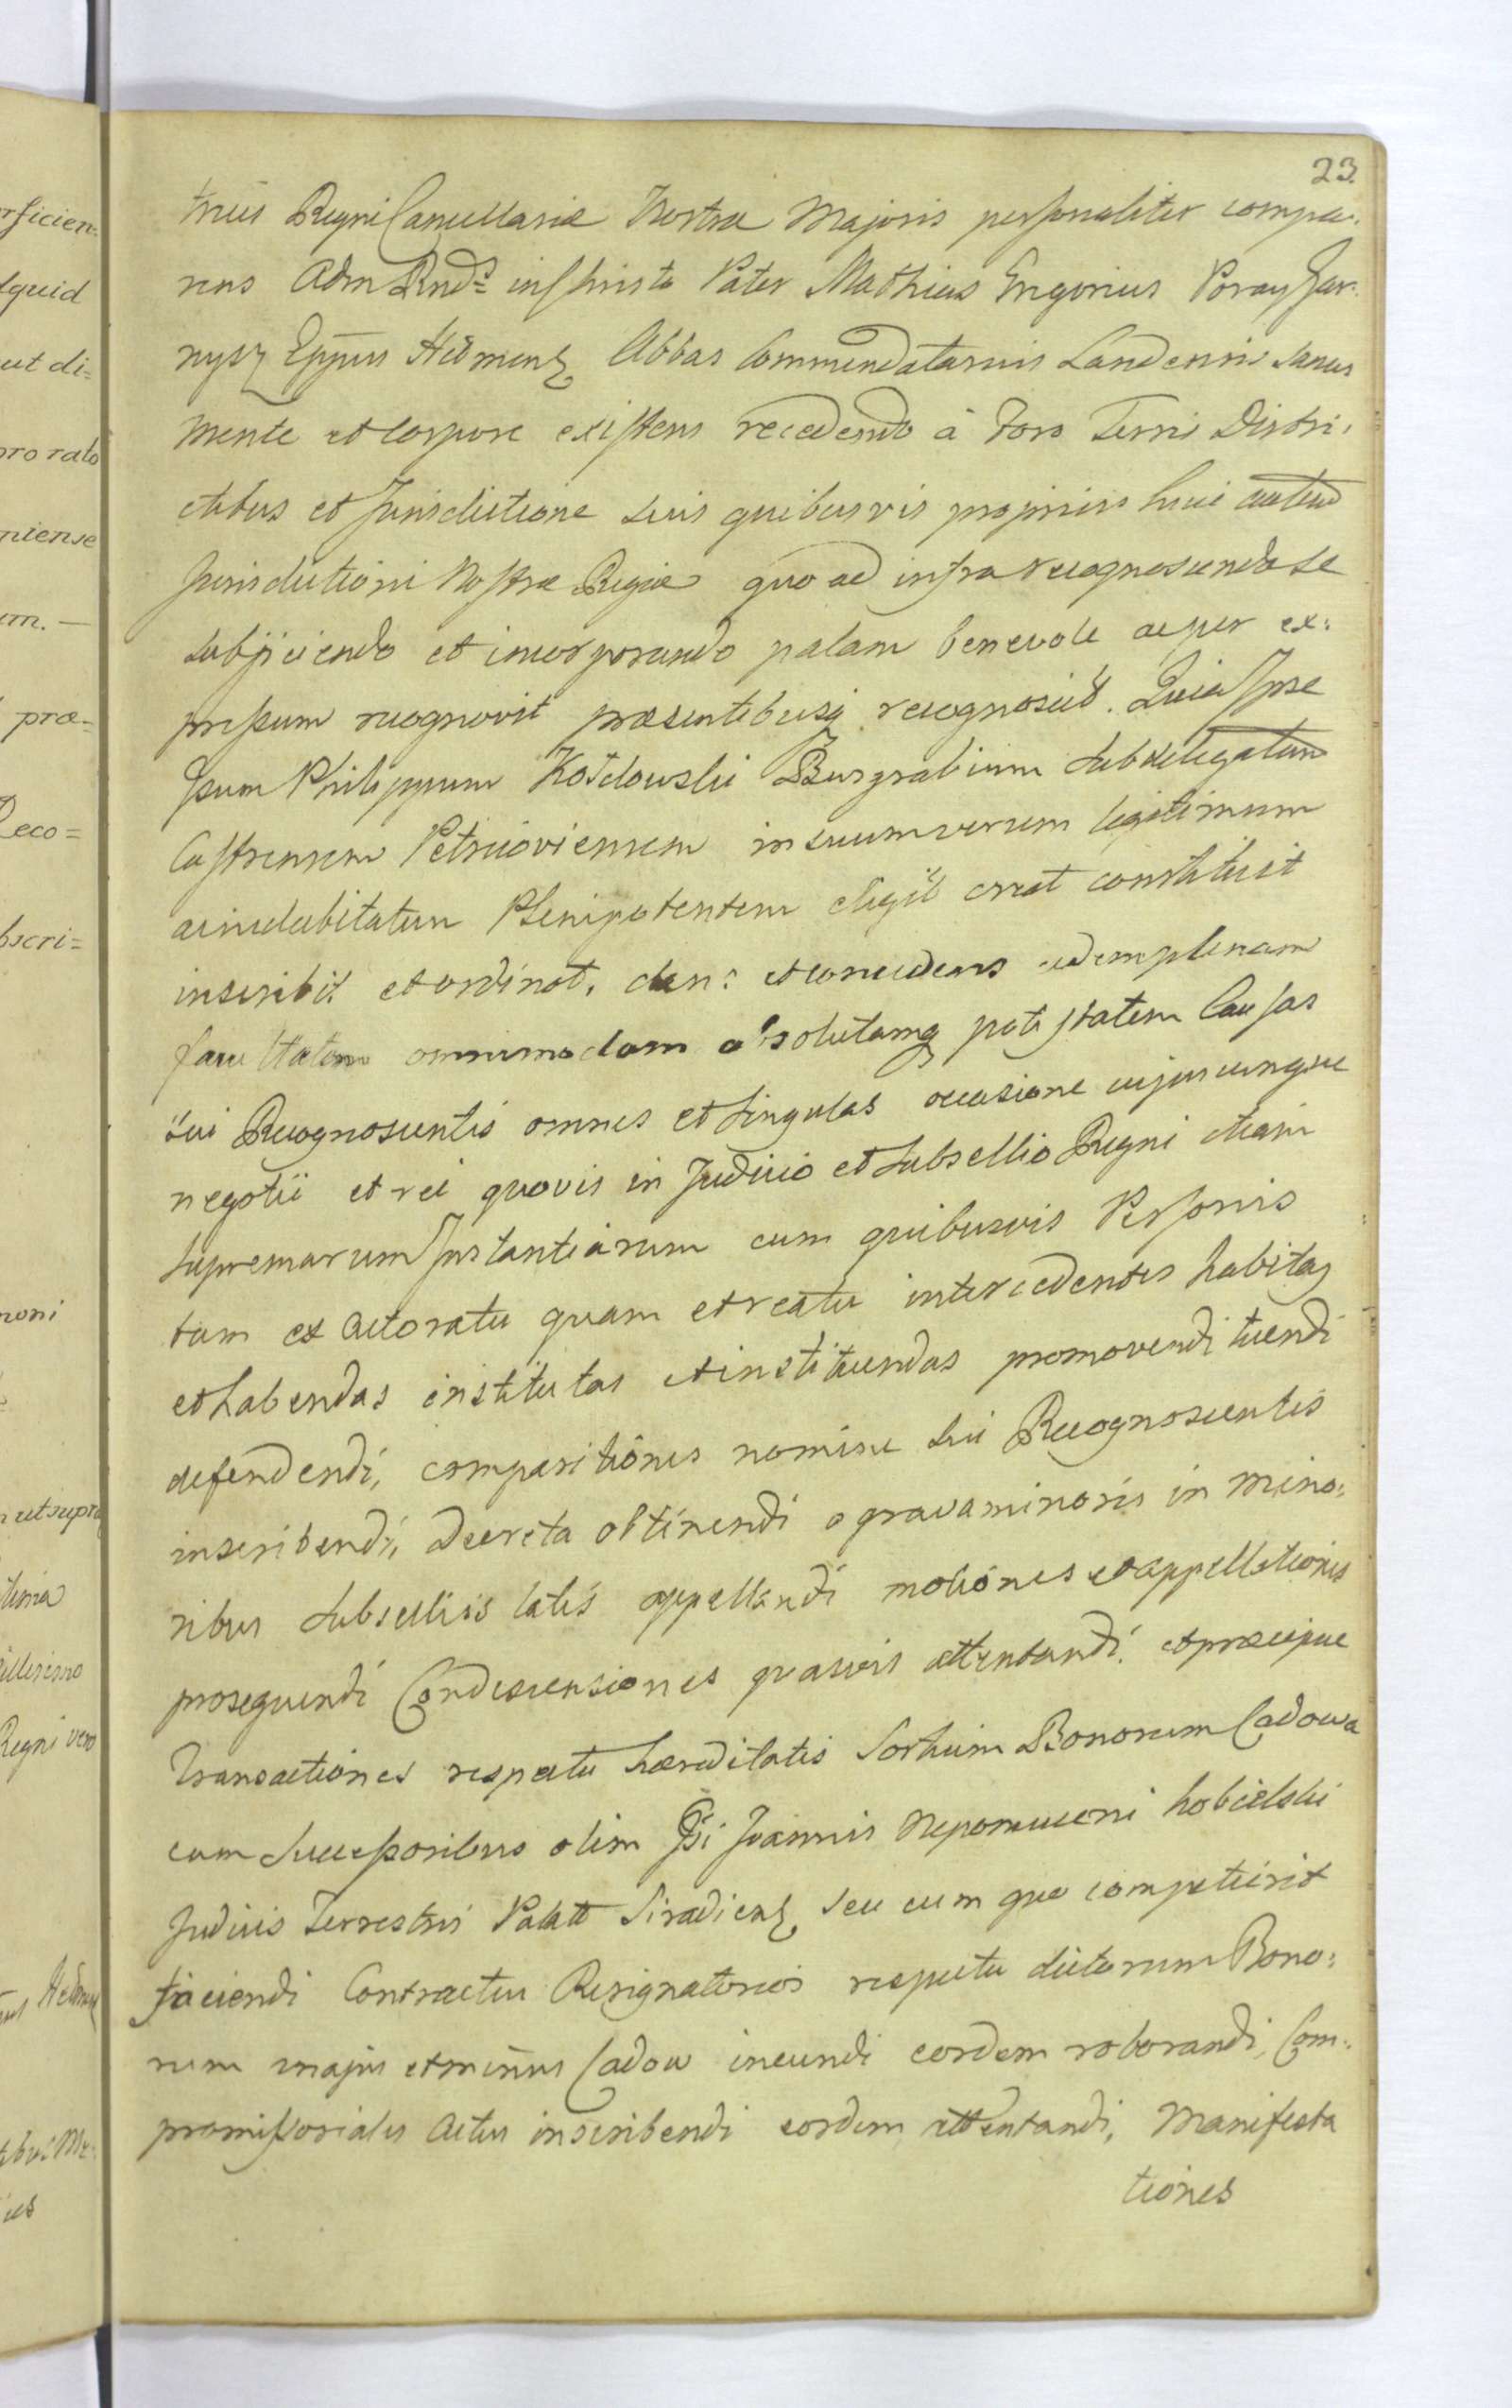 23.
trius Regni Cancellariæ Nostræ Majoris personaliter compa-
rens Adm Rnds in Christo Pater Mathias Grzgorius Poray Gar-
nysz Eppus Hedmens Abbas Commendatarius Landensis Sanus
mente et corpore existens recedendo à Foro Terris Distri-
ctibus et Jurisdictione suis quibusvis propriis huic autem
Jurisdictioni Nostræ Regiæ quo ad infra recognoscenda se
subjiciendo et incorporando palam benevole ac per ex-
pressum recognovit præsentibusq recognoscit. Quia Ipse
Gsum Philippum Kozlowski Burgrabium Subdelegatum
Castrensem Petricoviensem in suum verum legitimum
ac indubitatum Plenipotentem eligit creat constituit
inscribit et ordinat, dan: et concedens eidem plenam
facultatem omnimodam absolutamq potestatem Causas
sui Recognoscentis omnes et singulas occasione cujuscunque
negotii et rei quovis in Judicio et Subsellio Regni etiam
supremarum Instantiarum cum quibusvis Personis
tam ex actoratu quam et reatu intercedentes habitas
et habendas institutas et instituendas promovendi tuendi
defendendi, comparitiones nomine sui Recognoscentis
inscribendi, Decreta obtinendi a gravaminosis in mino-
ribus Subselliis latis appellandi motiones et appellationes
prosequendi Condescensiones quasvis attentandi. et præcipue
Transactiones respectu hæreditatis Sortium Bonorum Cadowa
cum Successoribus olim Gsi Joannis Nepomuceni Kobielski
Judicis Terrestris Palatt Siradiens seu cum quo competierit
faciendi Contractus Resignatorios respectu dictorum Bono-
rum majus et minus Cadow ineundi eosdem roborandi, Com-
promissoriales Actus inscribendi eosdem attentandi, Manifesta
tiones